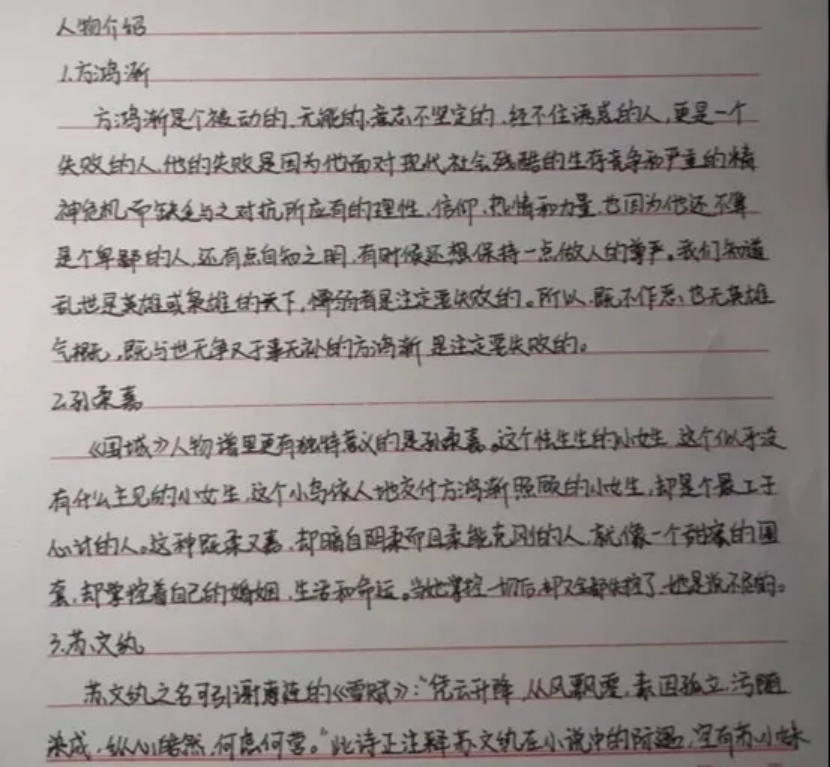 人物介绍
1.方鸿渐
方鸿渐是个被动的、无能的、意志不坚定的、经不住诱惑的人,更是一个
失败的人。他的失败是因为他面对现代社会残酷的生存竞争和严重的精
神危机,而缺乏与之对抗所应有的理性、信仰、热情和力量,也因为他还不算
是个卑鄙的人,还有点自知之明,有时候还想保持一点做人的尊严。我们知道
乱世是英雄或枭雄的天下,懦弱者是注定要失败的。所以,既不作恶、也无英雄
气概,既与世无争又于事无补的方鸿渐是注定要失败的。
2.孙柔嘉
《围城》人物谱里更有独特意义的是孙柔嘉。这个怯生生的小女生,这个似乎没
有什么主见的小女生,这个小鸟依人地交付方鸿渐照顾的小女生,却是个最工于
心计的人。这种既柔又嘉,却暗自阴柔而且柔能克刚的人,就像一个甜蜜的圈
套,却掌控着自己的婚姻、生活和命运。当她掌控一切后,却又全部失控了,她是说不尽的。
3.苏文纨
苏文纨之名可引谢惠连的《雪赋》:“凭云升降,从风飘零,素因孤立,污随
染成,纵心皓然,何虑何营。”此诗正注释苏文纨在小说中的际遇,空有苏小妹